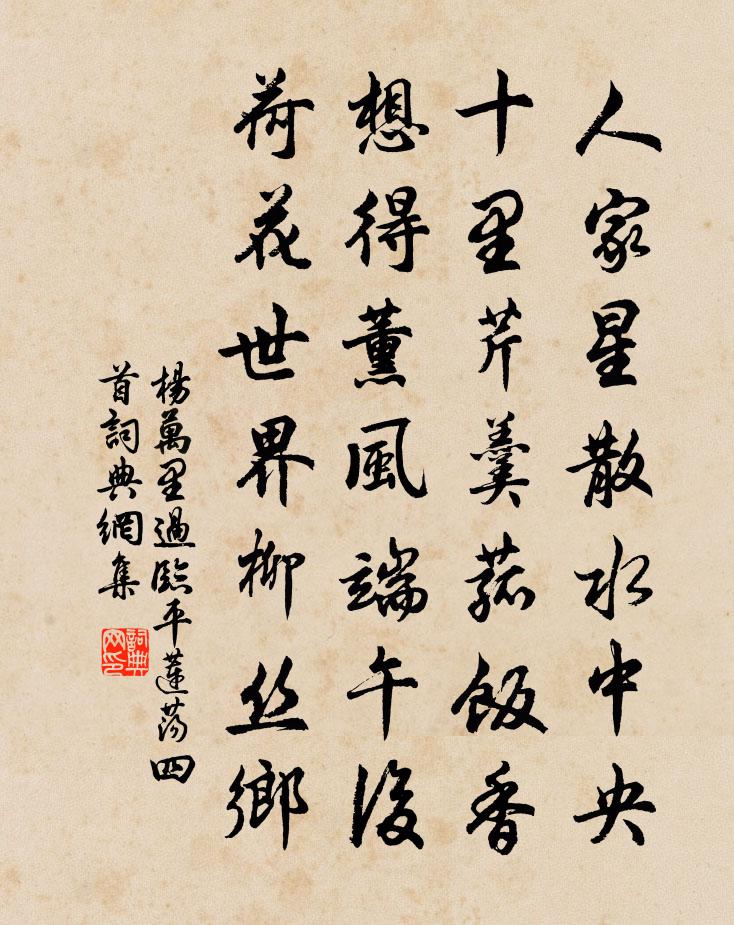 人家星散水中央
十里芹羹菰飯香
想得薰風端午後
荷花世界柳丝鄉
楊萬里過臨平蓮蕩四
首詞典網集
詞典网印